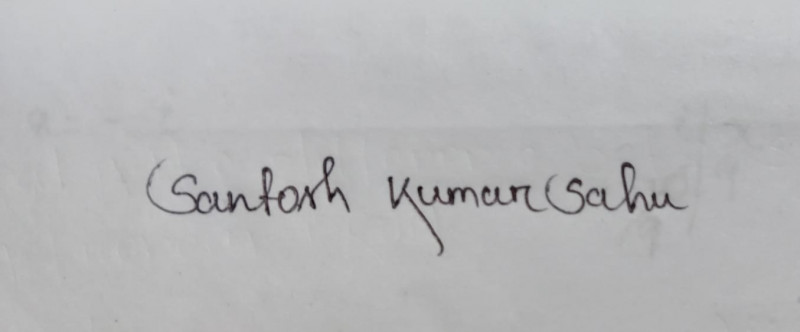 Santosh Kumar Sahu